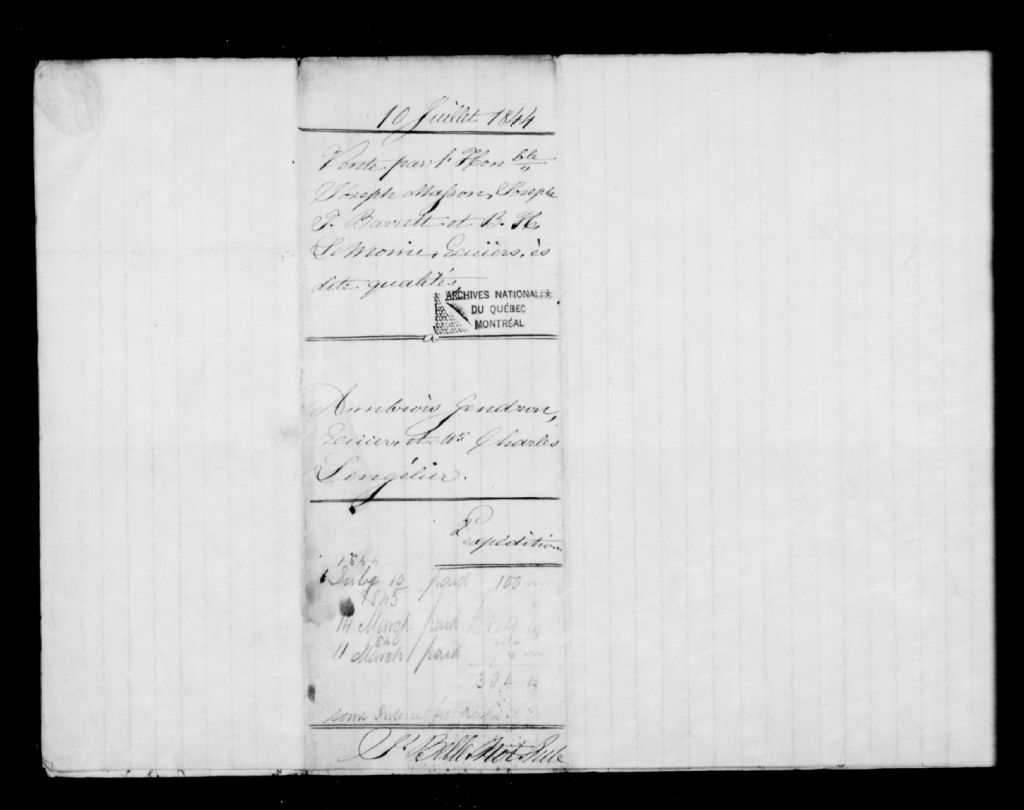 10 Juillet 1844
Vente par l'Honble
Joseph Masson, Joseph
T. Barrett et B. H.
LeMoine, Ecuiers, ès
dite qualités,
ARCHIVES NATIONALES
DU QUÉBEC
MONTRÉAL
à
Ambrois Gendron,
Ecuier, et Mr Charles
Lengélier.
Expédition
1844
July 10 paid 100
1845
14 March paid 129 14
1846
11 March paid 75
304 14
some
J. Belle Not Pub